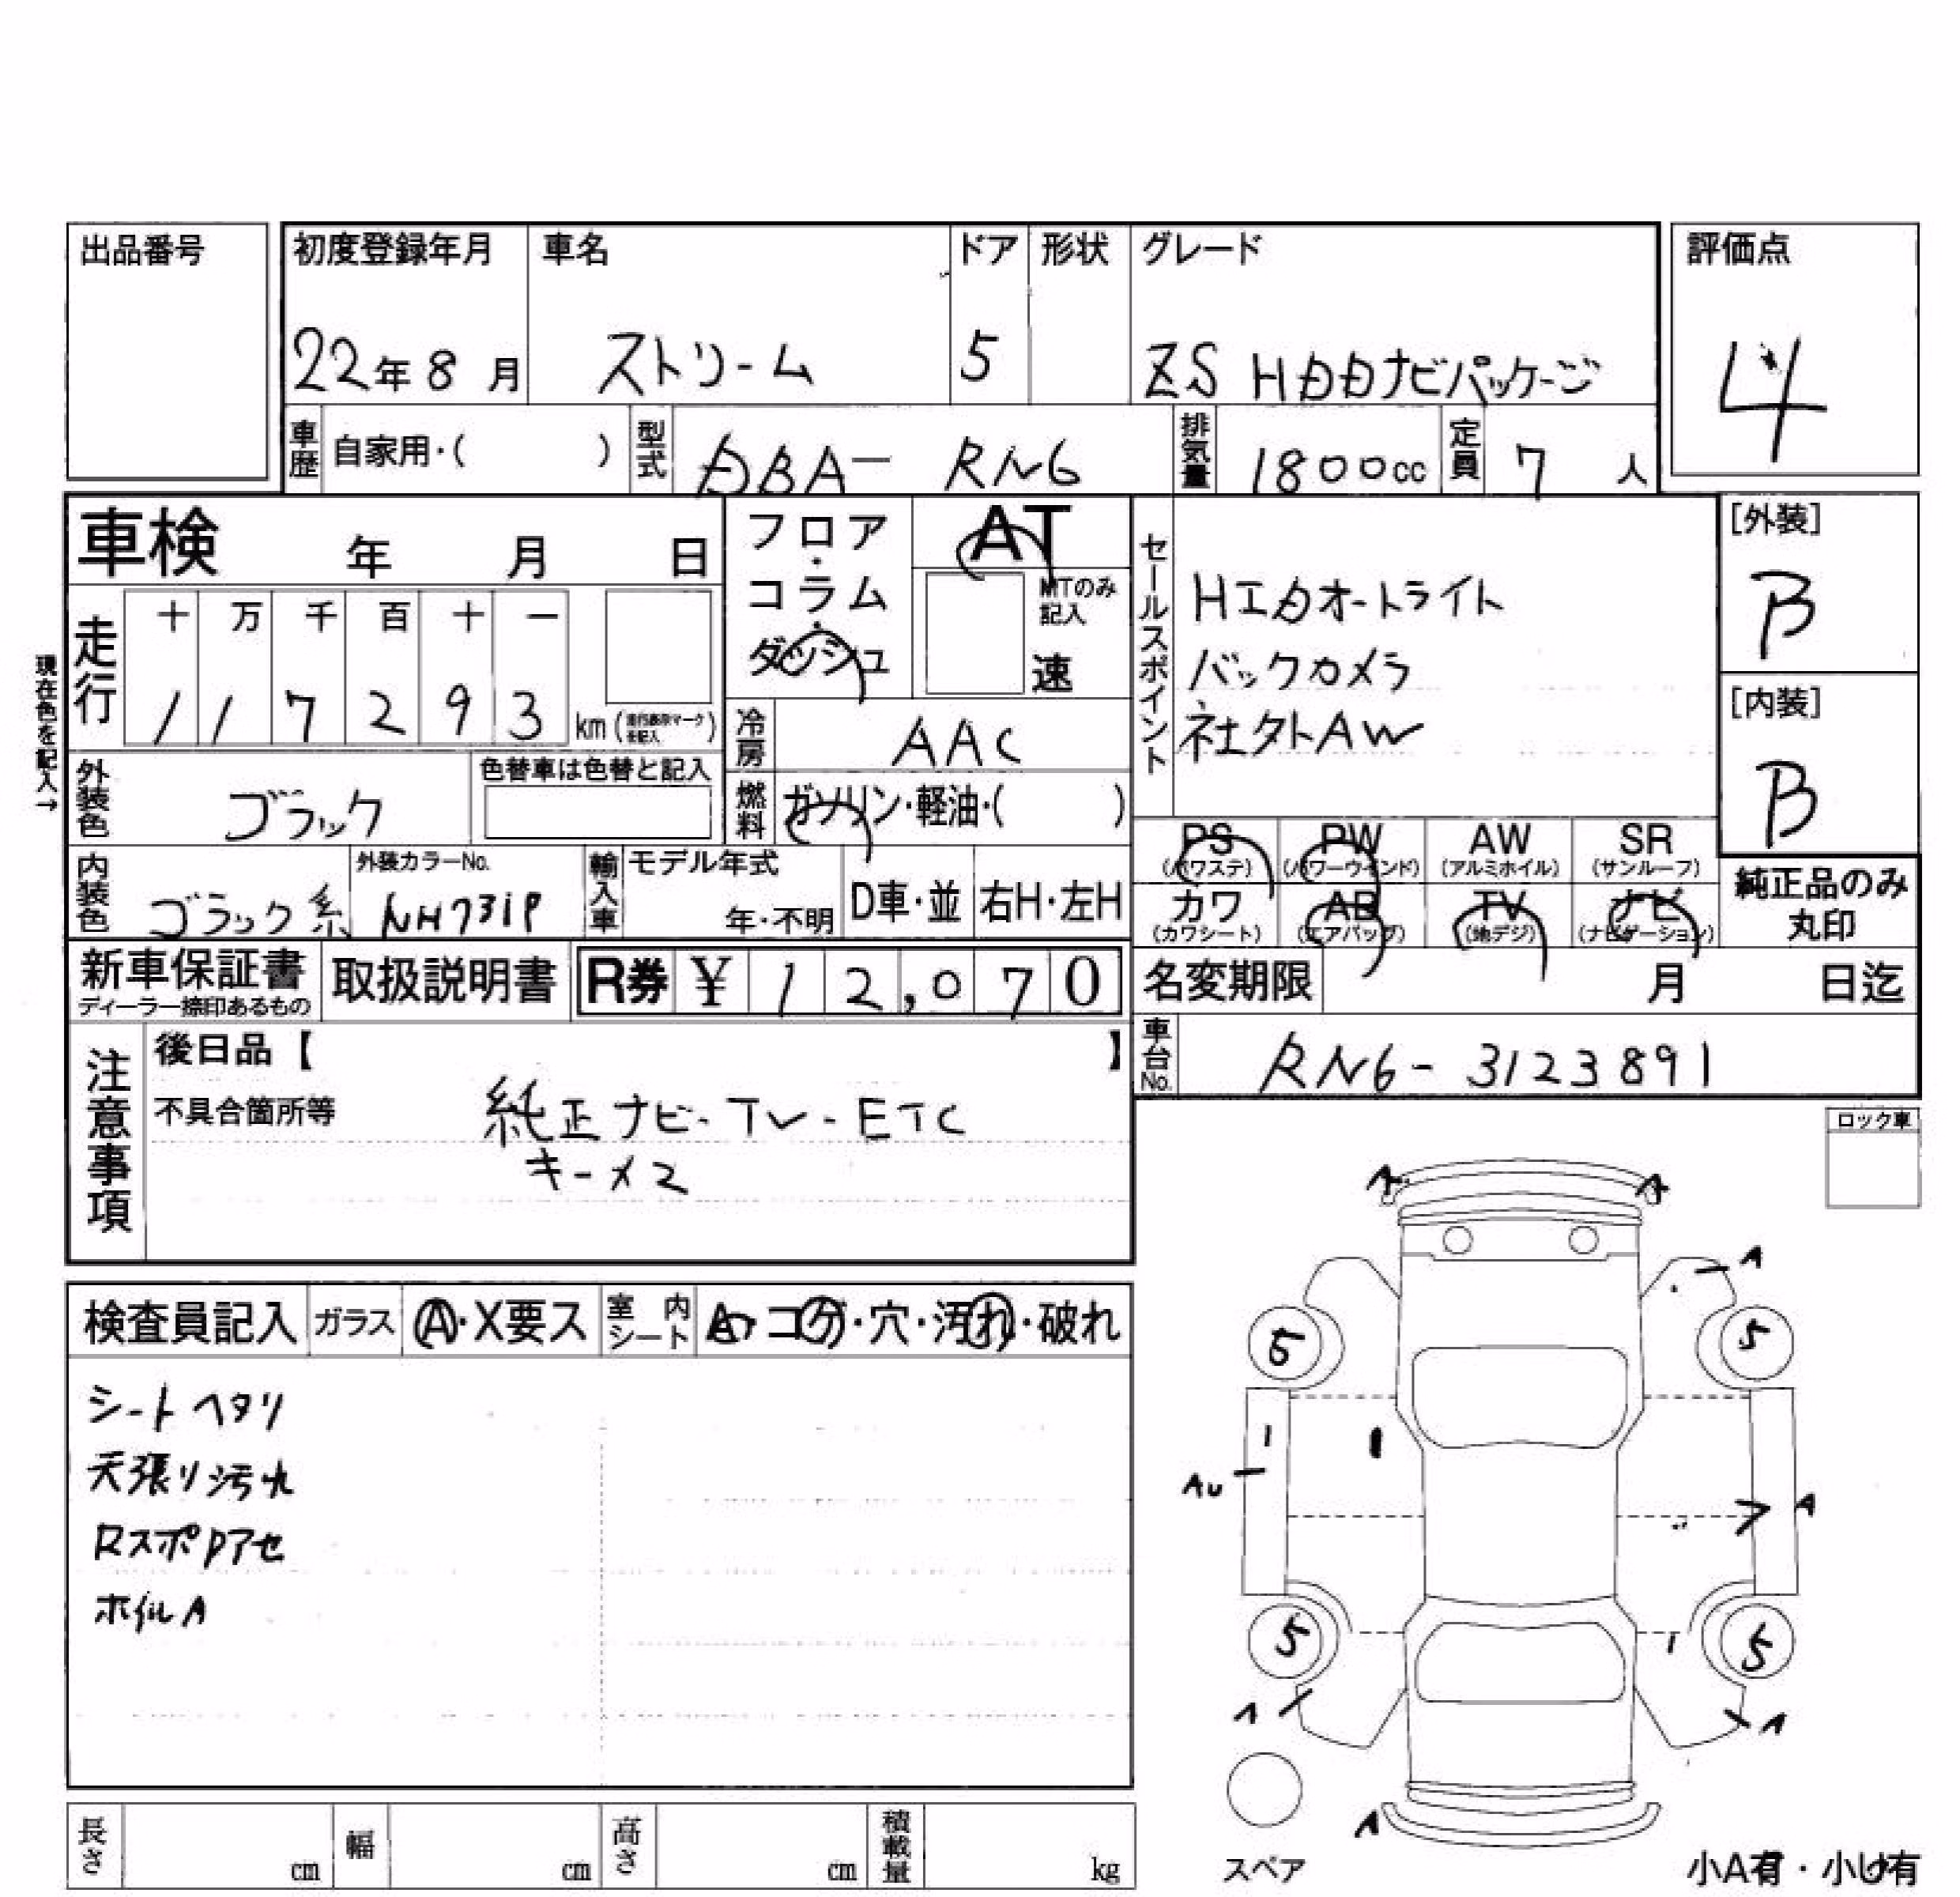 出品番号
初度登録年月 車名 ドア 形状 グレード
評価点
22年8月 ストリーム 5 ZS HDDナビパッケージ
4
車歴 自家用・( ) 型式 DBA- RN6 排気量 1800cc 定員 7 人
車検 年 月 日
フロア・コラム・ダッシュ
AT
MTのみ記入
速
セールスポイント
HIDオートライト
バックカメラ
社外AW
[外装]
B
[内装]
B
現在色を記入→
走行
十 万 千 百 十 一
1 1 7 2 9 3 km
冷房 AAC
外装色 ブラック
色替車は色替と記入
燃料 ガソリン・軽油・( )
PS (パワステ) PW (パワーウインド) AW (アルミホイル) SR (サンルーフ)
カワ (カワシート) AB (エアバッグ) TV (地デジ) ナビ (ナビゲーション)
純正品のみ丸印
内装色 ブラック系
外装カラーNo. NH731P
輸入車 モデル年式 年・不明 D車・並 右H・左H
新車保証書
ディーラー捺印あるもの
取扱説明書
R券 ¥ 12,070
名変期限 月 日迄
車台No. RN6-3123891
注意事項
後日品【 】
不具合箇所等
純正ナビ-TV-ETC
キー×2
ロック車
検査員記入 ガラス A・X要ス 室内シート A・コゲ・穴・汚れ・破れ
シートヘタリ
天張り汚れ
RスポDアセ
ホイルA
A A
A
5 5
AU A
5 5
A A
A
スペア
小A有・小U有
長さ cm 幅 cm 高さ cm 積載量 kg